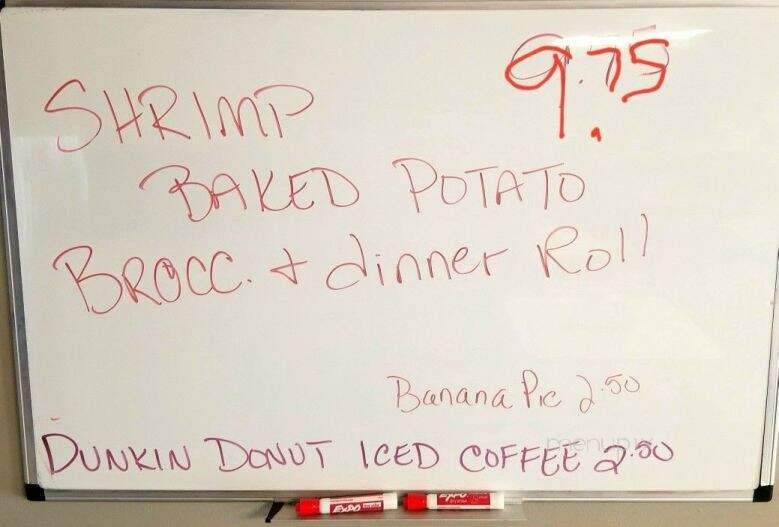 9.75
SHRIMP
BAKED POTATO
BROCC. + dinner Roll
Banana Pie 2.50
DUNKIN DONUT ICED COFFEE 2.50
EXPO EXPO